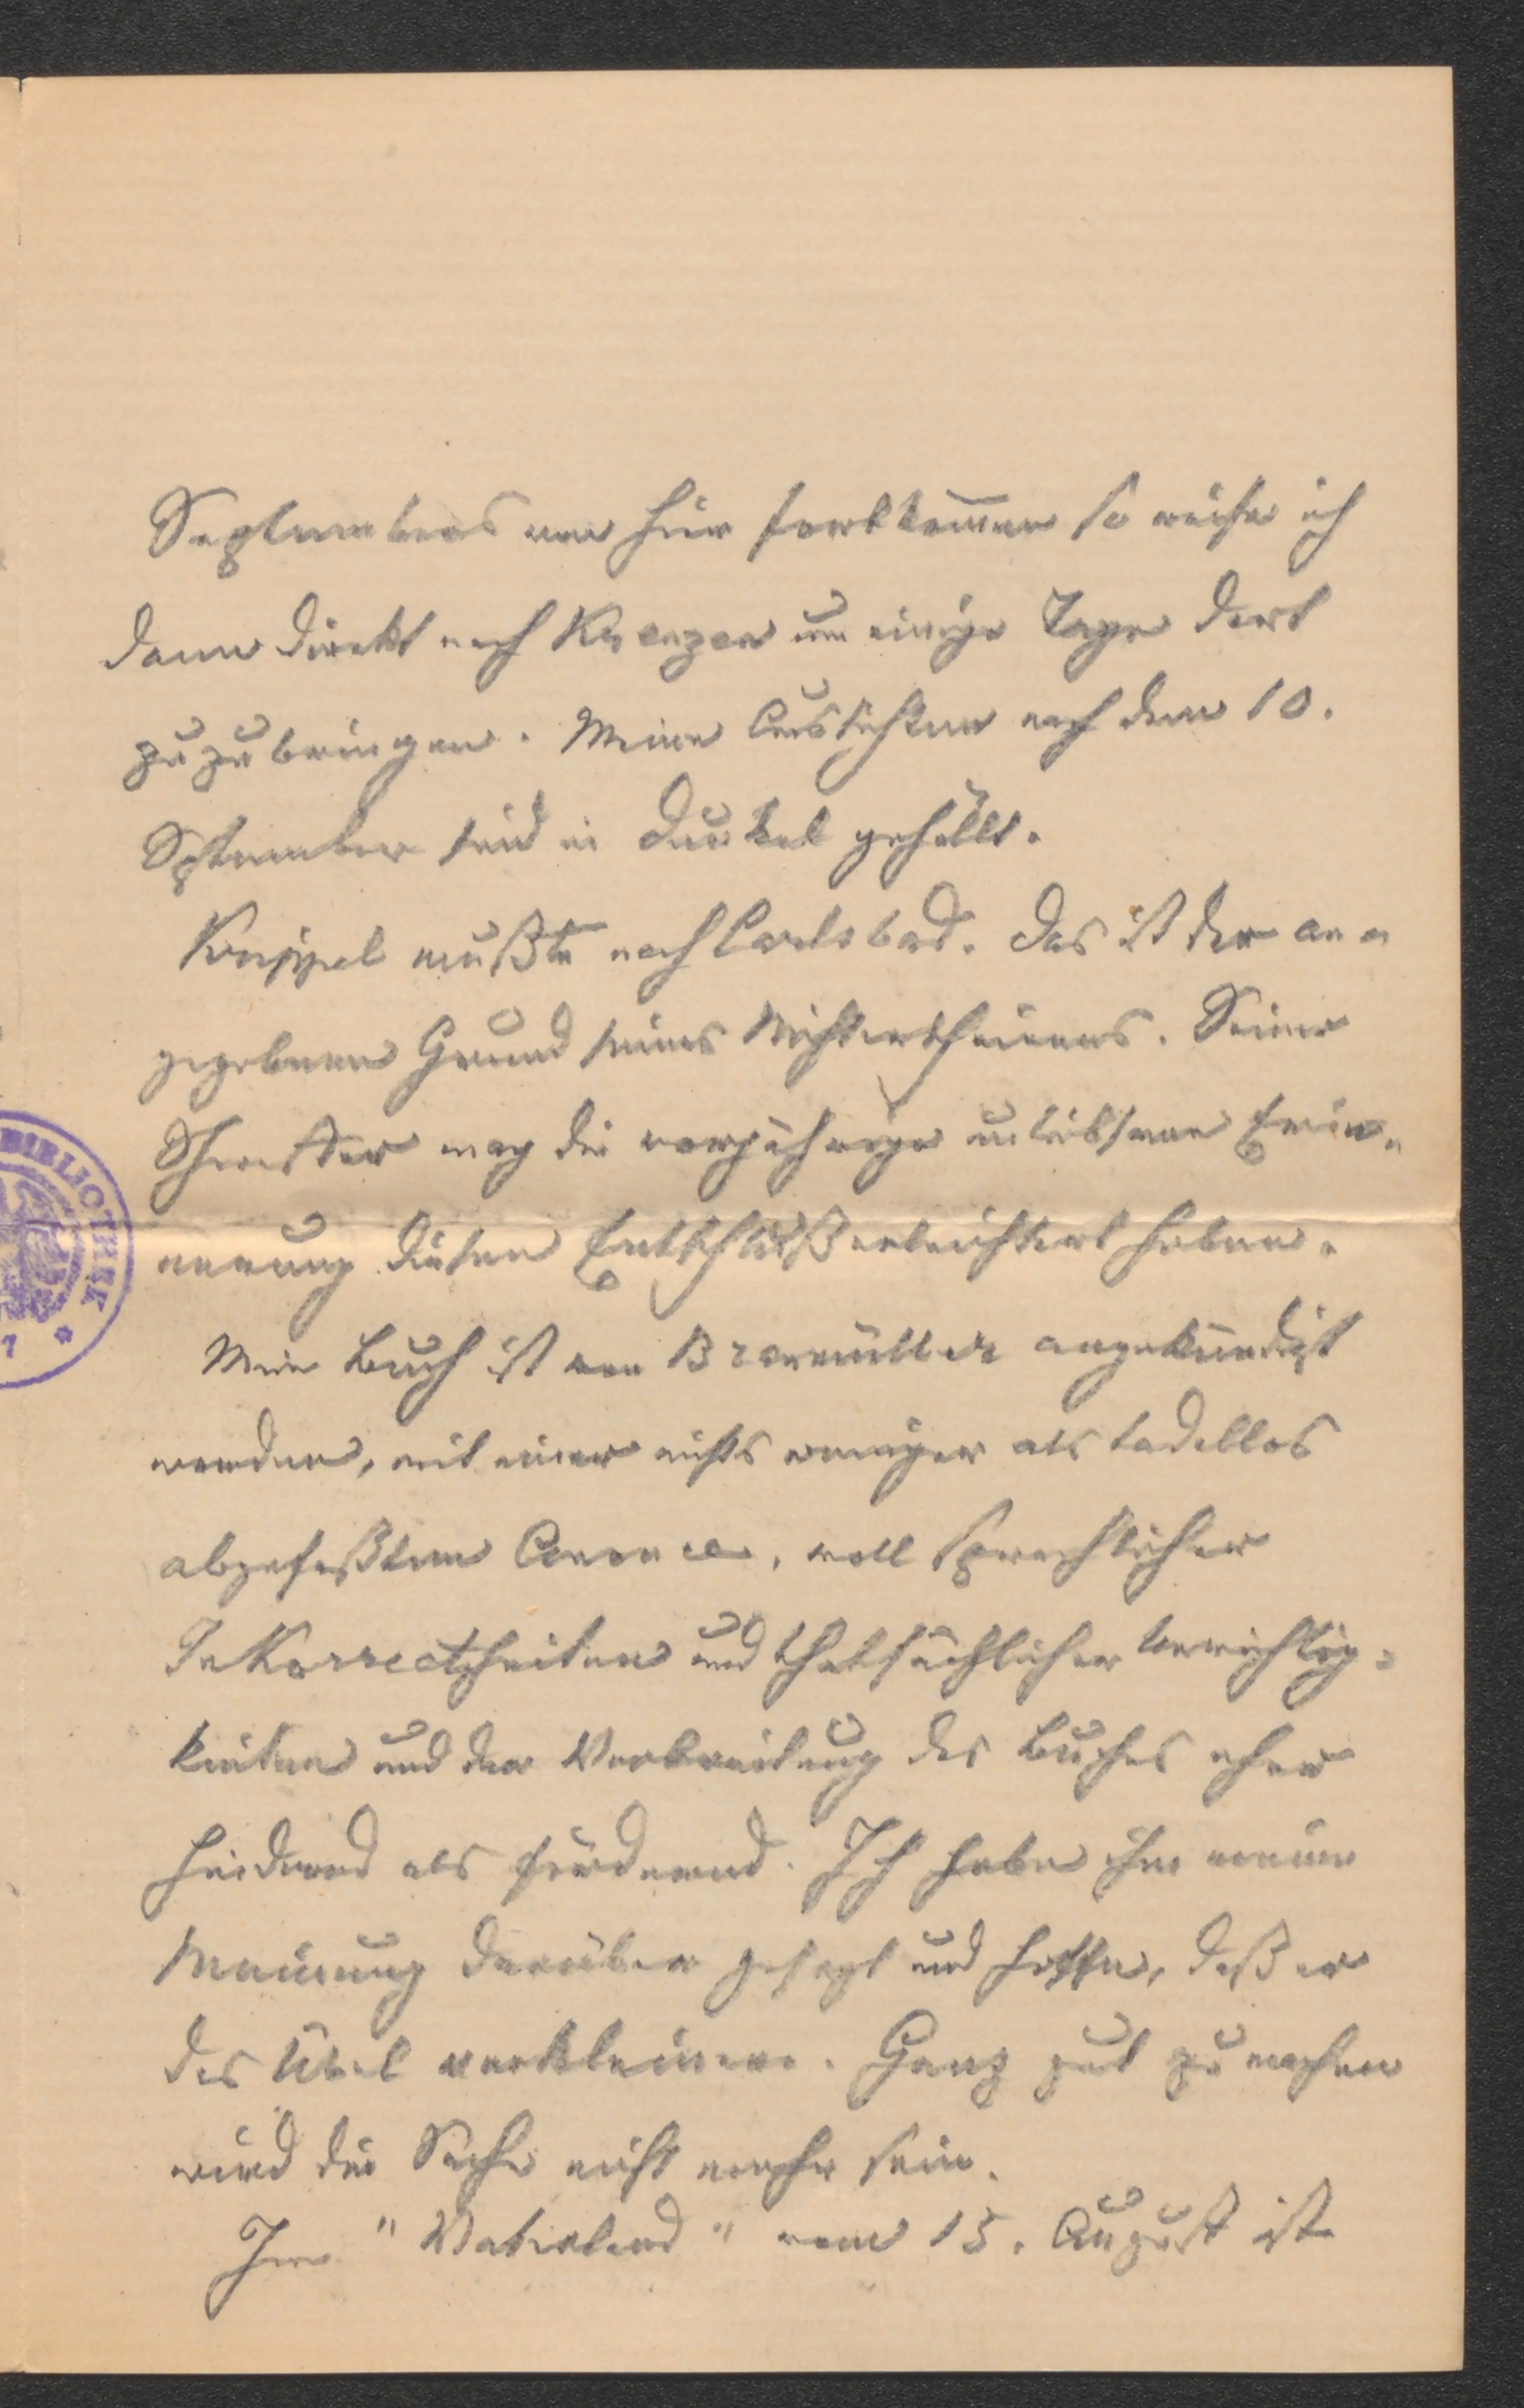 Septembers von hier fortkommen so reise ich
dann direkt nach um einige Tage dort
zuzubringen. Meine Aussichten nach dem 10.
September sind in Dunkel gehüllt.
Knippel mußte nach Carlsbad. Das ist der an=
gegebene Grund seines Nichterscheinens. Seiner
Schwester mag die vorjährige unliebsame Erin=
nerung diesen Entschluß erleichtert haben.
Mein Buch ist von Braumüller angekündigt
worden, mit einer nichts weniger als tadellos
abgefaßten Annonce, voll sprachlicher
InKorrectheiten und thatsächlicher Unrichtig=
keiten und der Verbreitung des Buches eher
hindernd als fördernd. Ich habe ihm meine
Meinung darüber gesagt und hoffe, daß er
das Übel verkleinere. Ganz gut zu machen
wird die Sache nicht mehr sein.
Im "Vaterland" vom 15. August ist
BIBLIOTHEK